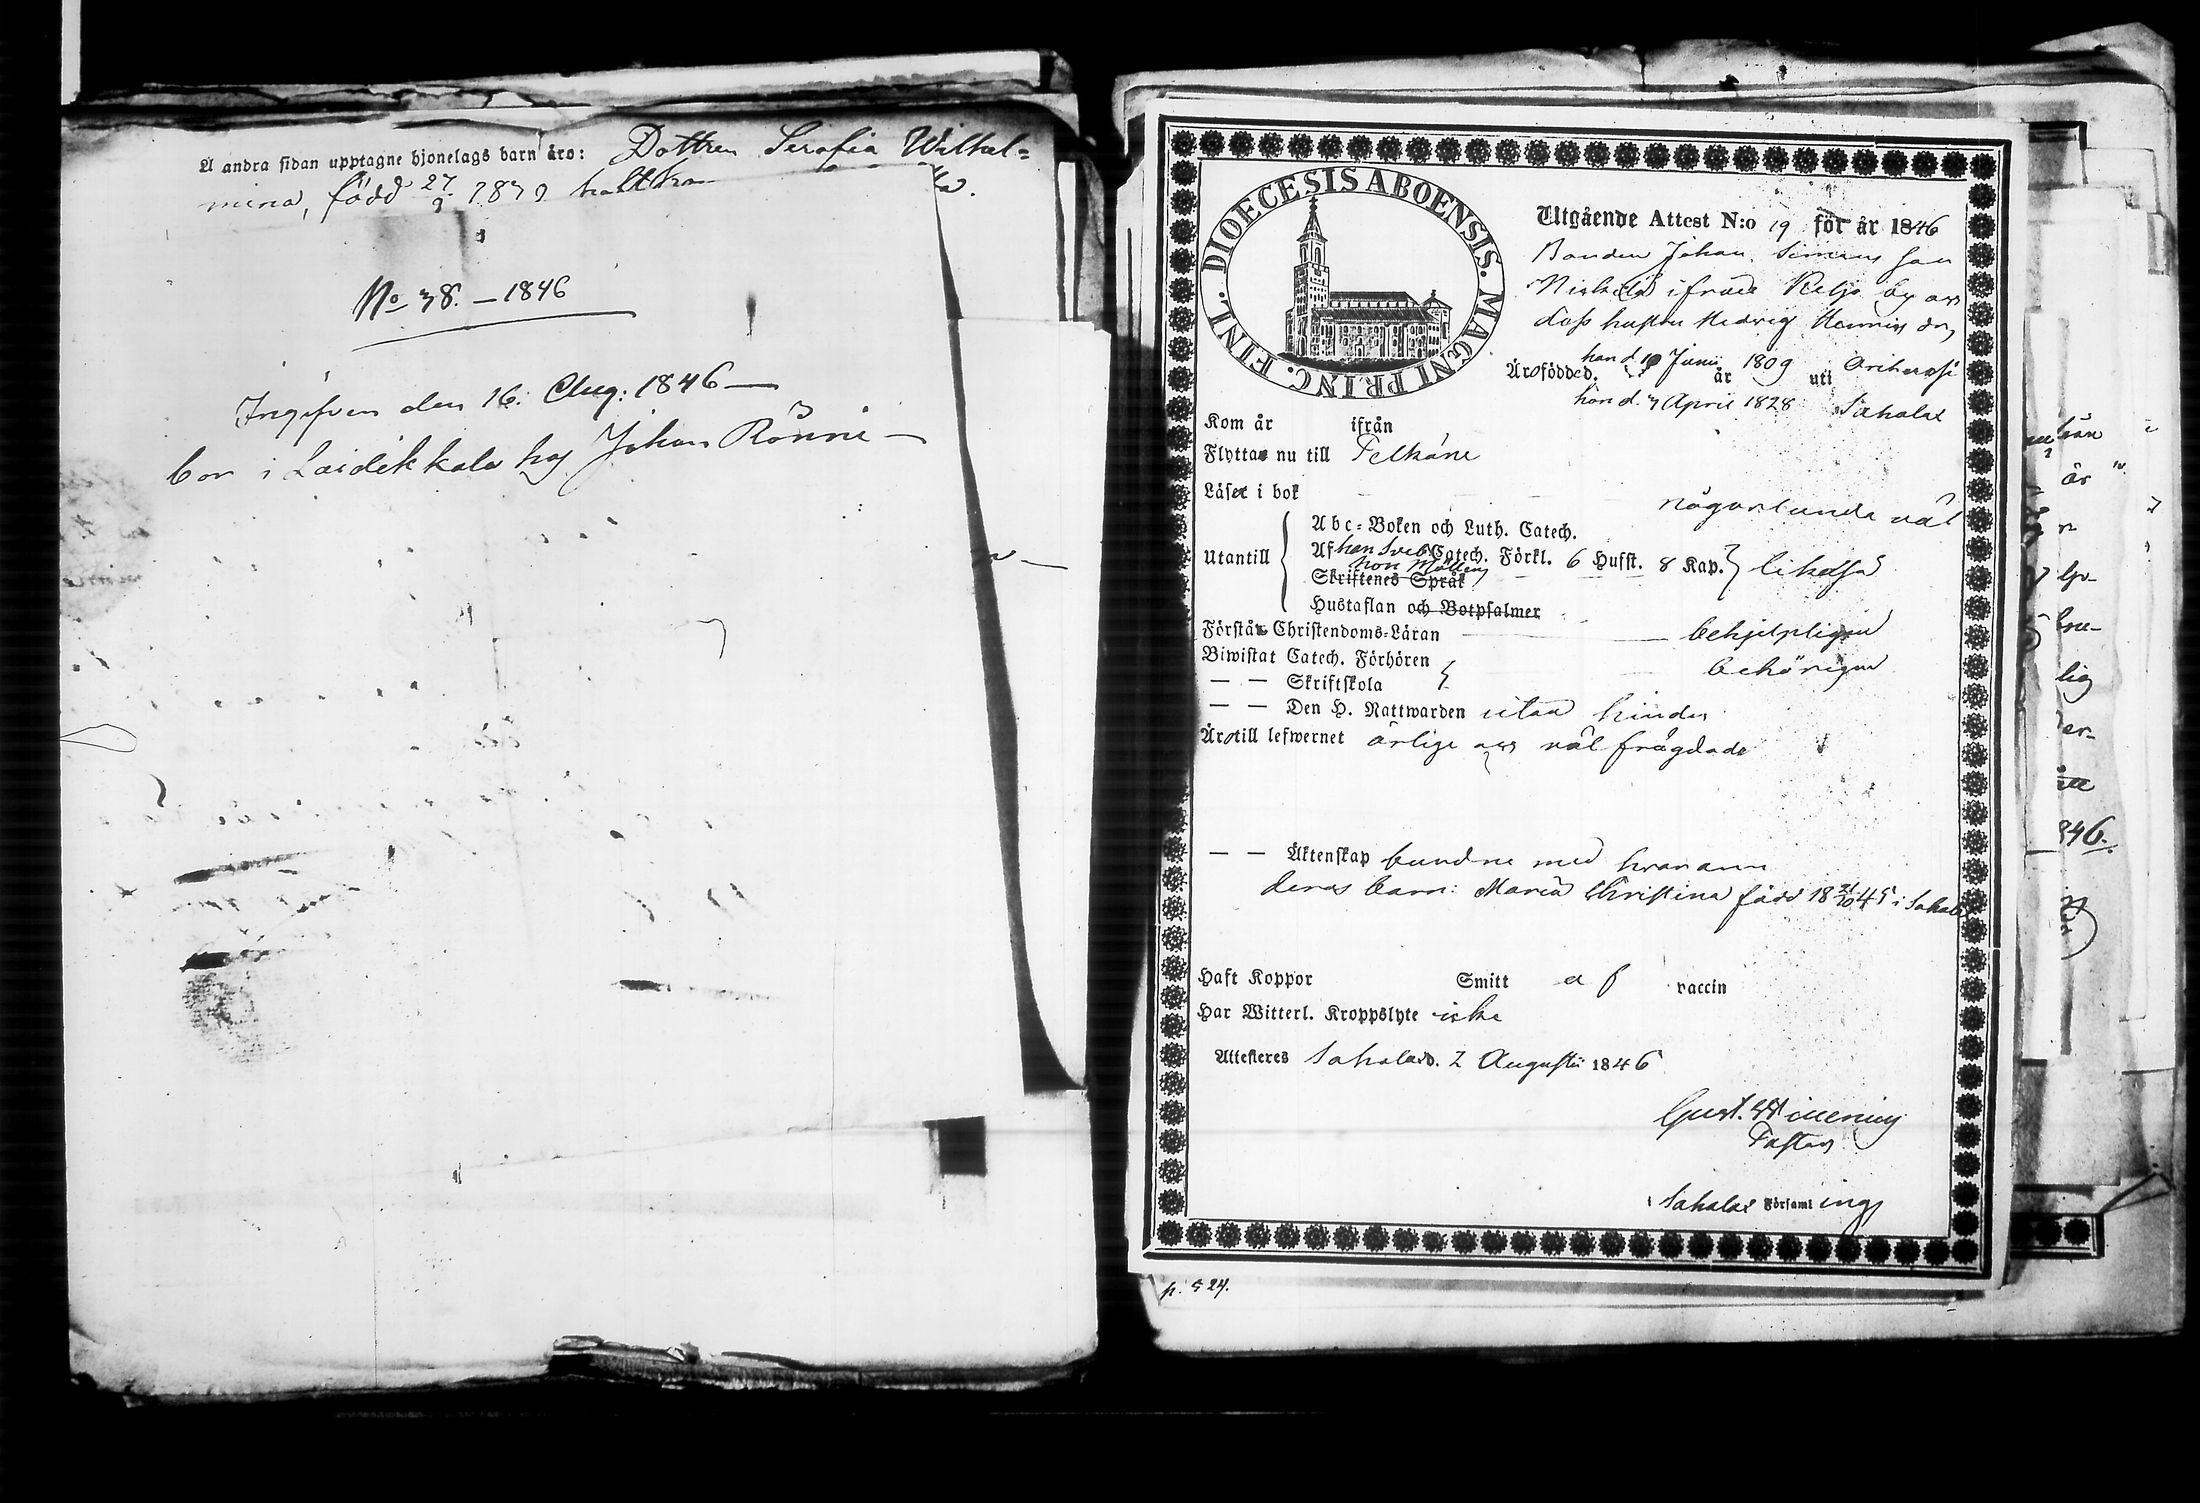 A andra sidan upptagne hjonelags barn äro: Dottren Serafia Wilhel=
mina, född 27/9 1839
No 38. – 1846
Ingifven den 16. Aug: 1846 —
bor i Laidikkala hos Johan Rönni —
DIOECESIS ABOENSIS. MAGNI PRINC. FINL.
Utgående Attest N:o 19 för år 1846
Bonden Johan Simons son
ifrån by och
dess hustru Hedvig Henrics dr,
Äro födde d. han d. 10 Juni år 1809 uti Orihvesi
hon d. 7 April 1828 Sahalax
Kom år ifrån
Flytta nu till Pelkäne
Läser i bok någorlunda väl
Utantill
Abc-Boken och Luth. Catech.
Af han Sveb. Catech. Förkl. 6 Hufst. 8 Kap. likaså
hon
Skriftenes Språk
Hustaflan och Botpsalmer
Förstå Christendoms-Läran — behjelpligen
Biwistat Catech. Förhören behörigen
— — Skriftskola
— — Den H. Nattwarden utan hinder
Äro till lefwernet ärlige och väl frägdade
— — Äktenskap bundne med hvarann
deras barn: Maria Christina född 18 21/10 45 i Sahalax
Haft Koppor Smitt af vaccin
Har Witterl. Kroppslyte icke
Attesteras Sahalax d. 2 Augusti 1846
Gust.
Pastor
i Sahalax Församlings
p. 524.